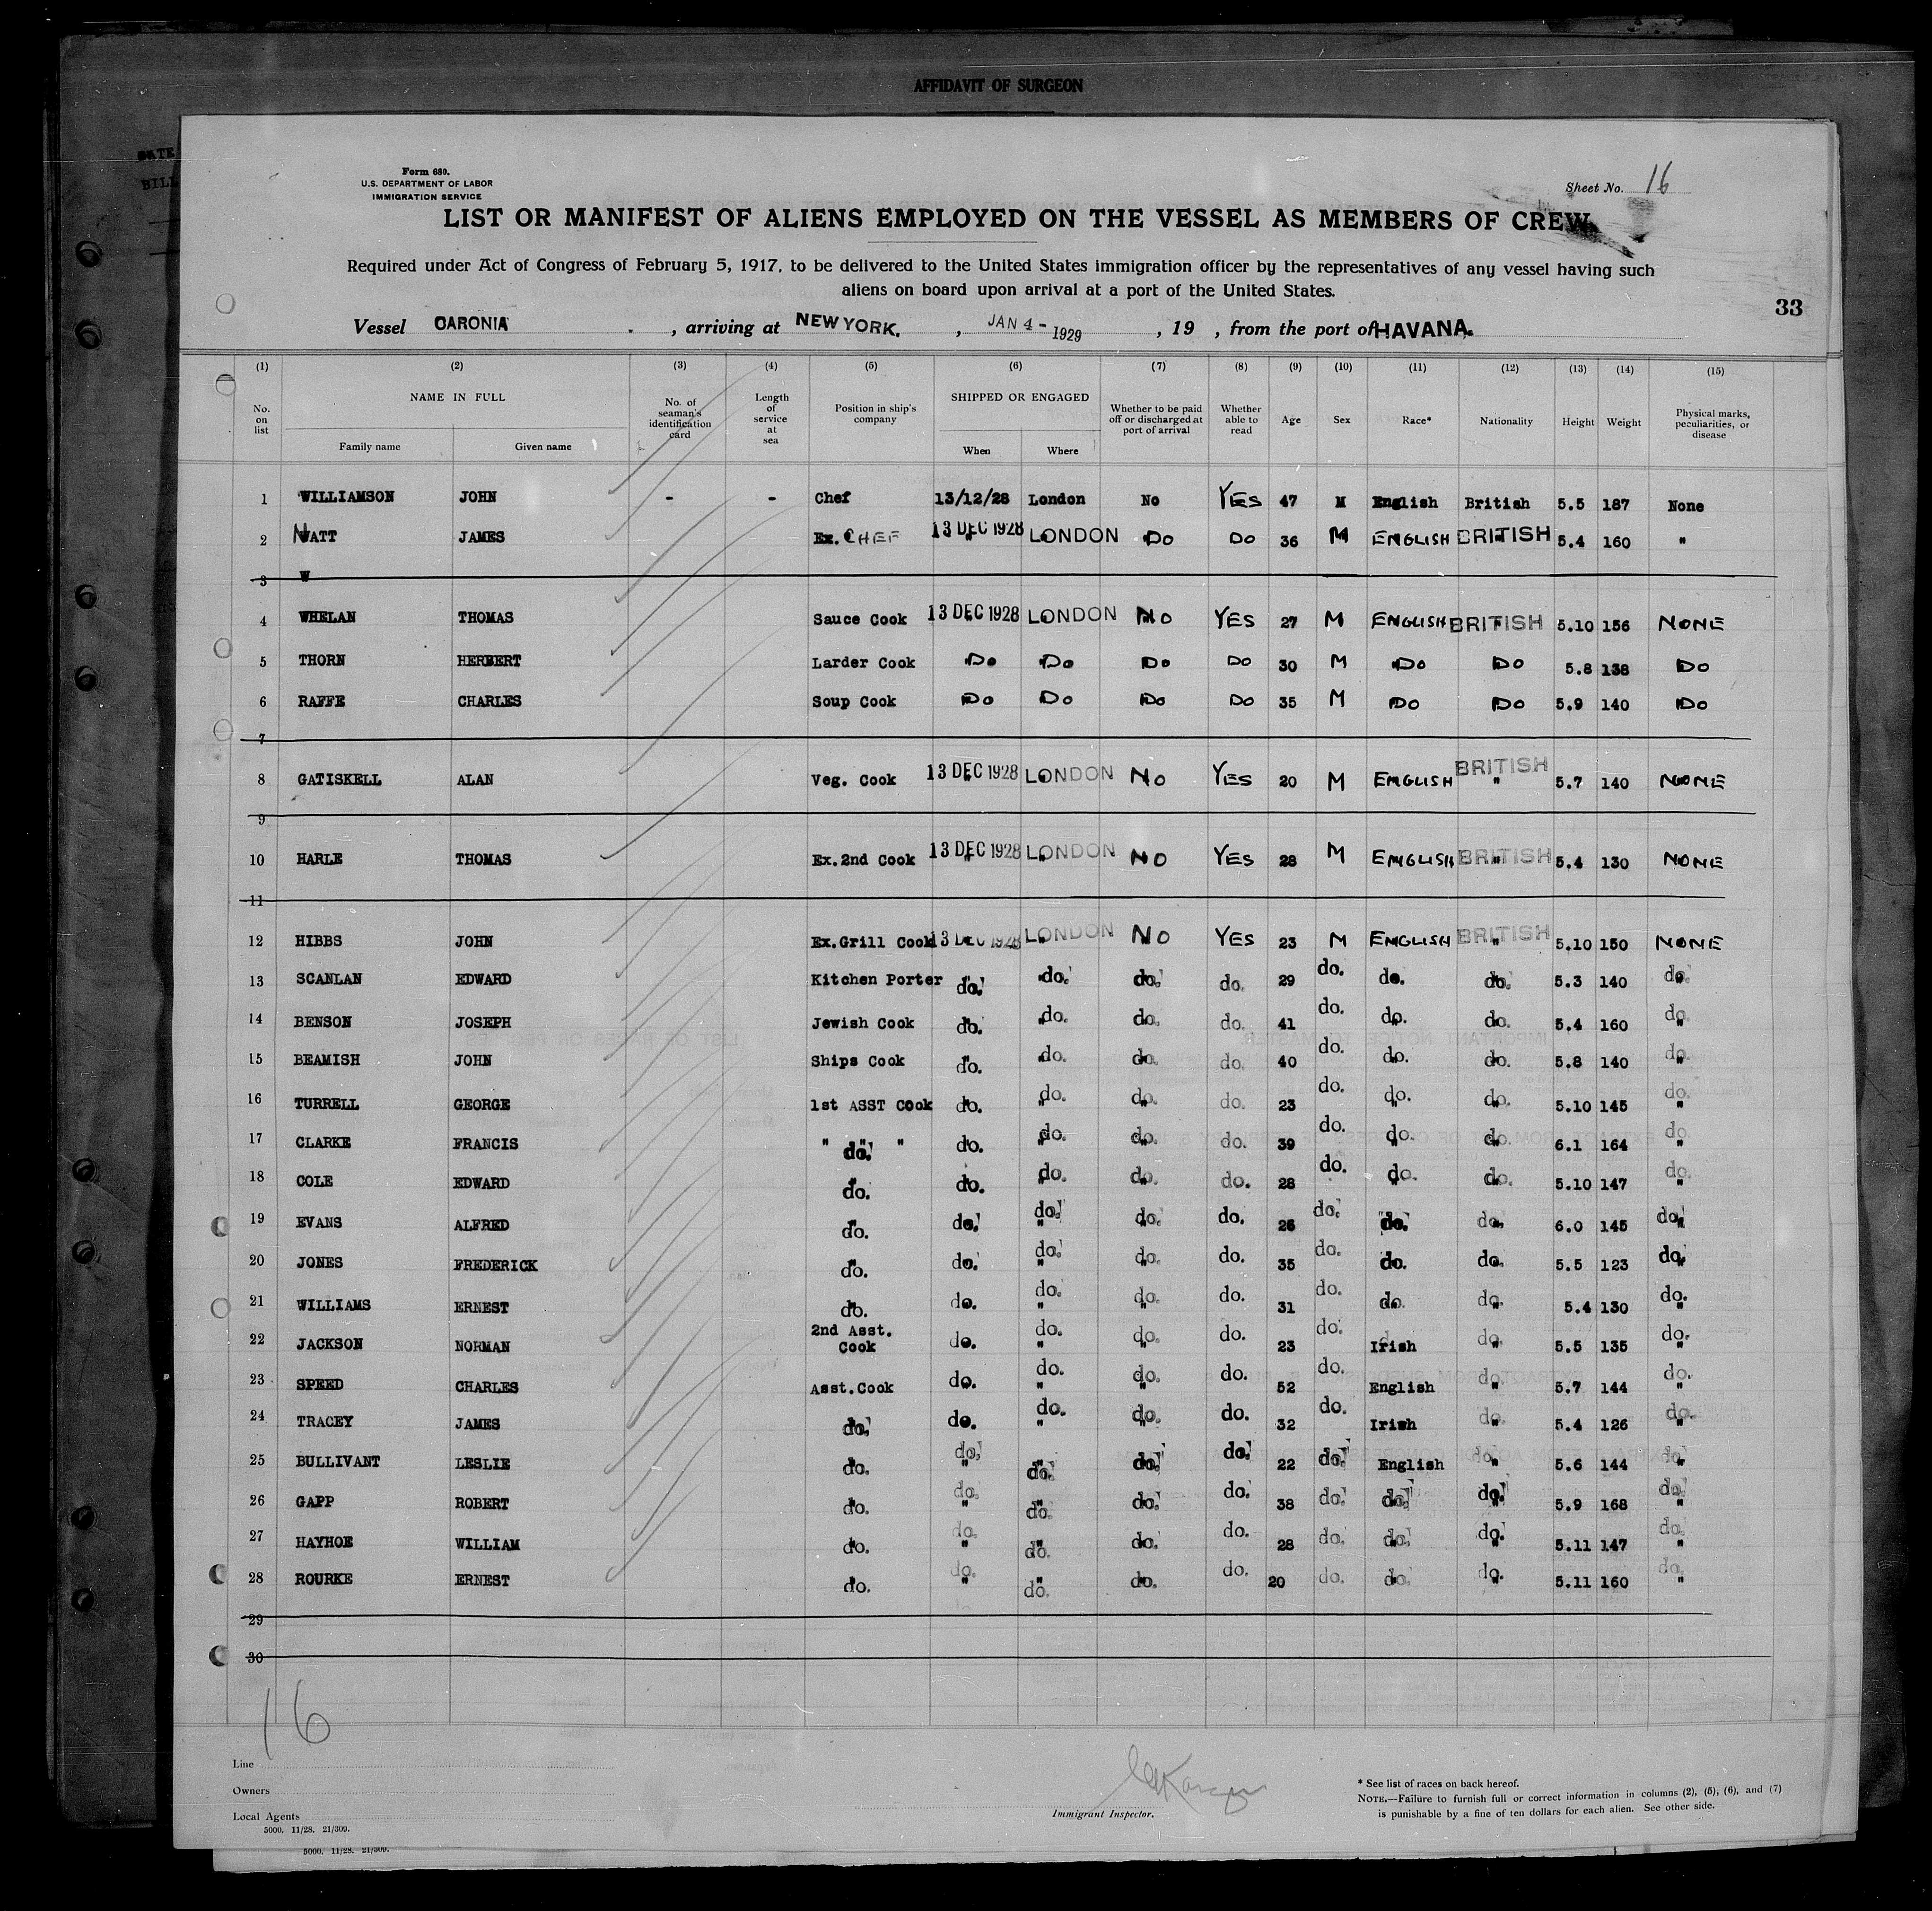 AFFIDAVIT OF SURGEON
Form 680.
U.S. DEPARTMENT OF LABOR
IMMIGRATION SERVICE
Sheet No. 16
LIST OR MANIFEST OF ALIENS EMPLOYED ON THE VESSEL AS MEMBERS OF CREW
Required under Act of Congress of February 5, 1917, to be delivered to the United States immigration officer by the representatives of any vessel having such
aliens on board upon arrival at a port of the United States.
33
Vessel CARONIA , arriving at NEW YORK. , JAN 4 - 1929 , 19 , from the port of HAVANA.
(1) (2) (3) (4) (5) (6) (7) (8) (9) (10) (11) (12) (13) (14) (15)
No. on list NAME IN FULL Family name Given name No. of seaman's identification card Length of service at sea Position in ship's company SHIPPED OR ENGAGED When Where Whether to be paid off or discharged at port of arrival Whether able to read Age Sex Race* Nationality Height Weight Physical marks, peculiarities, or disease
1 WILLIAMSON JOHN - - Chef 13/12/28 London No YES 47 M English British 5.5 187 None
2 WATT JAMES Ex. CHEF 13 DEC 1928 LONDON Do Do 36 M ENGLISH BRITISH 5.4 160 "
3 W
4 WHELAN THOMAS Sauce Cook 13 DEC 1928 LONDON No YES 27 M ENGLISH BRITISH 5.10 156 NONE
5 THORN HERBERT Larder Cook Do Do Do Do 30 M Do Do 5.8 138 Do
6 RAFFE CHARLES Soup Cook Do Do Do Do 35 M Do Do 5.9 140 Do
7
8 GATISKELL ALAN Veg. Cook 13 DEC 1928 LONDON No YES 20 M ENGLISH BRITISH 5.7 140 NONE
9
10 HARLE THOMAS Ex.2nd Cook 13 DEC 1928 LONDON NO YES 28 M ENGLISH BRITISH 5.4 130 NONE
11
12 HIBBS JOHN Ex.Grill Cook 13 DEC 1928 LONDON NO YES 23 M ENGLISH BRITISH 5.10 150 NONE
13 SCANLAN EDWARD Kitchen Porter do. do. do. do. 29 do. do. do. 5.3 140 do.
14 BENSON JOSEPH Jewish Cook do. do. do. do. 41 do. do. do. 5.4 160 do.
15 BEAMISH JOHN Ships Cook do. do. do. do. 40 do. do. do. 5.8 140 do.
16 TURRELL GEORGE 1st ASST COok do. do. do. do. 23 do. do. do. 5.10 145 do.
17 CLARKE FRANCIS " do. " do. do. do. do. 39 do. do. do. 6.1 164 do.
18 COLE EDWARD do. do. do. do. do. 28 do. do. do. 5.10 147 do.
19 EVANS ALFRED do. do. do. do. do. 26 do. do. do. 6.0 145 do.
20 JONES FREDERICK do. do. do. do. do. 35 do. do. do. 5.5 123 do.
21 WILLIAMS ERNEST do. do. do. do. do. 31 do. do. do. 5.4 130 do.
22 JACKSON NORMAN 2nd Asst. Cook do. do. do. do. 23 do. Irish do. 5.5 135 do.
23 SPEED CHARLES Asst.Cook do. do. do. do. 52 do. English do. 5.7 144 do.
24 TRACEY JAMES do. do. do. do. do. 32 do. Irish do. 5.4 126 do.
25 BULLIVANT LESLIE do. do. do. do. do. 22 do. English do. 5.6 144 do.
26 GAPP ROBERT do. do. do. do. do. 38 do. do. do. 5.9 168 do.
27 HAYHOE WILLIAM do. do. do. do. do. 28 do. do. do. 5.11 147 do.
28 ROURKE ERNEST do. do. do. do. do. 20 do. do. do. 5.11 160 do.
29
30
16
Line
Owners
Local Agents
5000. 11/28. 21/309.
Immigrant Inspector.
* See list of races on back hereof.
NOTE.—Failure to furnish full or correct information in columns (2), (5), (6), and (7)
is punishable by a fine of ten dollars for each alien. See other side.
5000. 11/28. 21/309.